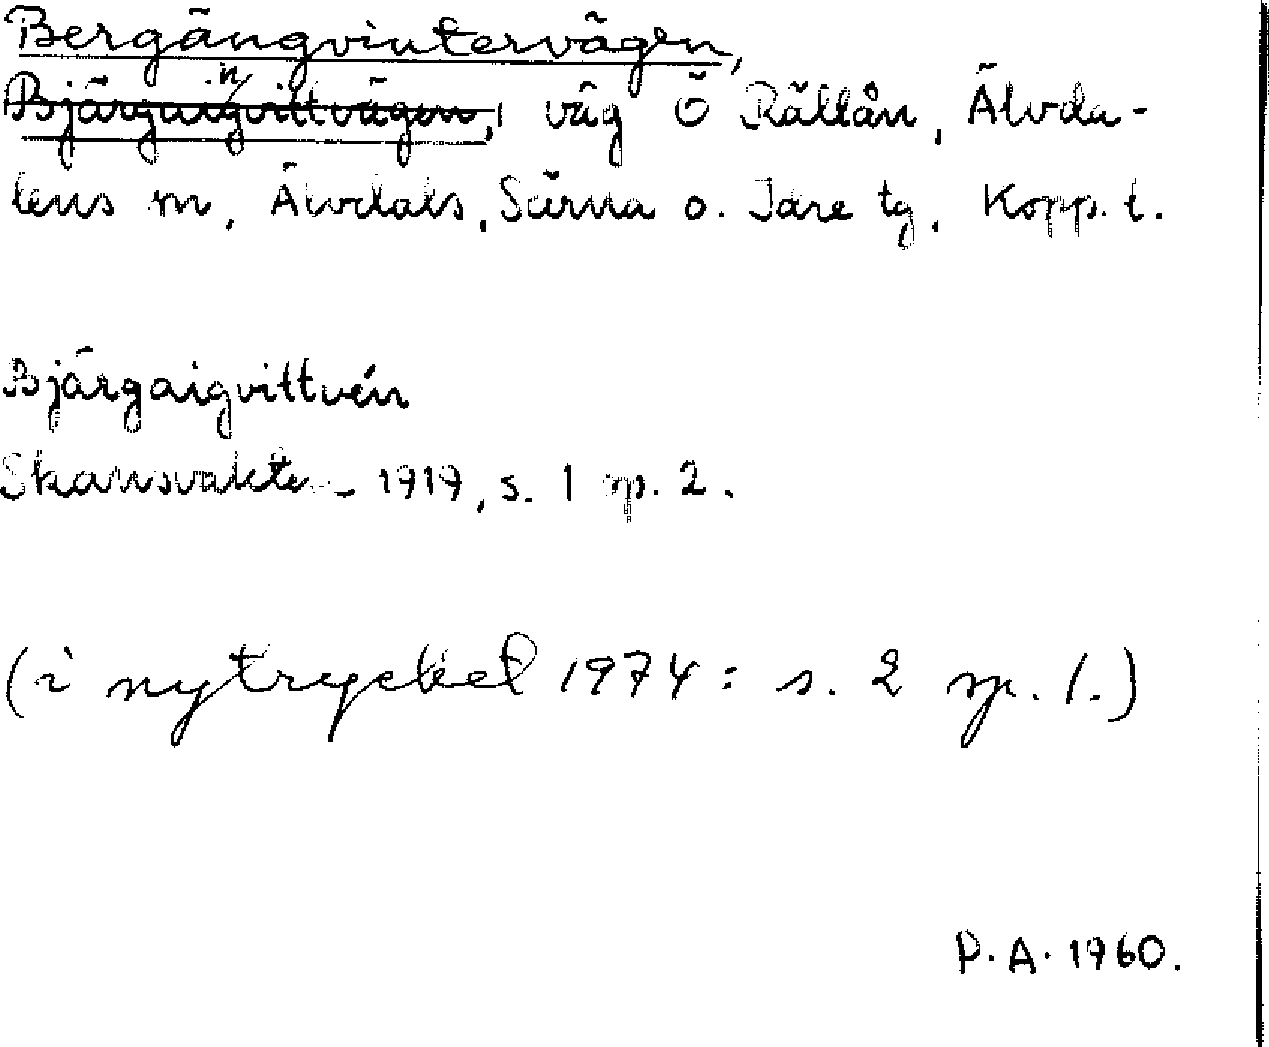 Bergängvintervägen,
Bjärgaingvittvägen, väg Ö Rällån, Älvda-
lens m, Älvdals, Särna o. Idre tg, Kopp. l.
Bjärgaigvittvén
Skansvakten 1919, s. 1 sp. 2.
(i nytrycket 1974: s. 2 sp. 1.)
P.A. 1960.